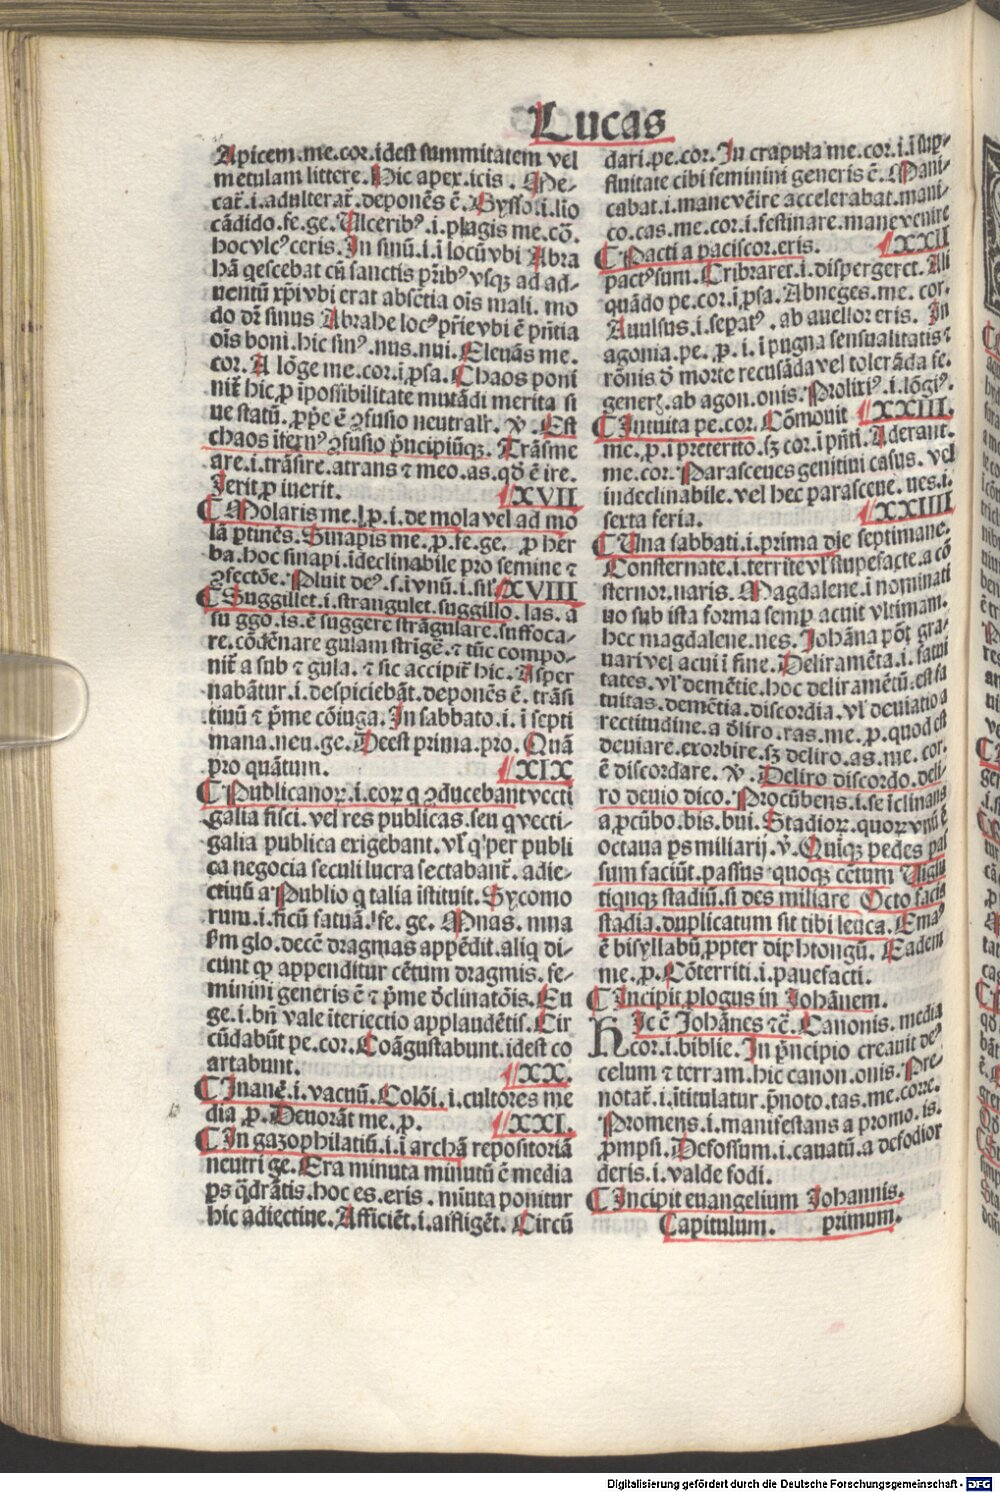 Lucas
Apicem.me.cor.idest summitatem vel
metulam littere. Hic apex.icis. Me-
cat̄.i.adulterat̄.deponēs ē. Bysso.i.lio
cādido.fe.ge. Ulceribꝰ.i.plagis me.cō.
hoc vlcꝰceris. In sinū.i.ī locū vbi Abra
hā q̄escebat cū sanctis pr̄ibꝰ vsqꝫ ad ad-
uentū xp̄i vbi erat absētia oīs mali. mo
do dr̄ sinus Abrahe locꝰ pr̄ie vbi ē pn̄tia
oīs boni. hic sinꝰ.nus.nui. Eleuās me.
cor. A lōge me.cor.ī ꝓsa. Chaos poni
nit̄ hic ꝓ īpossibilitate mutādi merita si
ue statū. ꝓp̄e ē ꝯfusio neutralr̄. ꝟ. Est
chaos īfernꝰ ꝯfusio pͥncipiūqꝫ. Trāsme
are.i.trāsire.a trans ⁊ meo.as.qd̄ ē ire.
Ierit ꝓ iuerit. XVII
Molaris me.l.p.i.de mola vel ad mo
lā ꝑtinēs. Sinapis me.ꝓ.fe.ge. ꝓ her
ba.hoc sinapi.ideclinabile pro semine ⁊
ꝯfectōe. Pluit deꝰ.s.i vnū.i.sil̄. XVIII
Suggillet.i.strangulet.suggillo.las.a
su ggo.is.ē suggere strāgulare.suffoca-
re.cōdēnare gulam strigē. ⁊ tūc compo-
nit̄ a sub ⁊ gula. ⁊ sic accipit̄ hic. Asper
nabātur.i.despiciebāt.deponēs ē. trāsi
tiuū ⁊ pͥme cōiuga. In sabbato.i.ī septi
mana.neu.ge. Deest prima.pro. Quā
pro quātum. XIX
Publicanoꝝ.i.eoꝝ q ꝯducebant vecti
galia fisci.vel res publicas.seu q vecti-
galia publica exigebant.vl̓ qͥ per publi
ca negocia seculi lucra sectabant̄. adie-
ctiuū a Publio q talia īstituit. Sycomo
rum.i.ficū fatuā.fe.ge. Mnas.mna
ẜm glo.decē dragmas appēdit.aliq di-
cunt ꝙ appenditur cētum dragmis.fe-
minini generis ē ⁊ pͥme d̓clinatōis. Eu
ge.i.bn̄ vale īteriectio applaudētis. Cir
cūdabūt pe.cor. Coāgustabunt.idest co
artabunt. XX.
Inanē.i.vacuū. Colōi.i.cultores me
dia ꝓ. Deuorāt me.ꝓ. XXI.
In gazophilatiū.i.ī archā repositoriā
neutri ge. Era minuta minutū ē media
ꝑs qͣdrātis.hoc es.eris. miuta ponitur
hic adiectiue. Afficiēt.i.afflīgēt. Circū
dari.pe.cor. In crapula me.cor.i.ī sup̱-
fluitate cibi feminini generis ē. Mani-
cabat.i.mane vēire accelerabat.mani-
co.cas.me.cor.i.festinare.mane venire
Pacti a paciscor.eris. XXII
pactꝰ sum. Cribraret.i.dispergeret. Ali
quādo pe.cor.ī ꝓsa. Abneges.me. cor.
Auulsus.i.sepatꝰ. ab auellor eris. In
agonia.pe. ꝓ. i. ī pugna sensualitatis ⁊
rōnis d̓ morte recusāda vel tolerāda fe.
generꝭ.ab agon.onis. Prolixiꝰ.i.lōgiꝰ.
Intuita pe.cor. Cōmouit XXIII.
me.ꝓ.i preterito.sꝫ cor.ī pn̄ti. Aderant.
me.cor. Parasceues genitiui casus. vel
indeclinabile.vel hec parasceue.ues.i.
sexta feria. XXIIII
Una sabbati.i.prima die septimane.
Consternate.i.territe vl̓ stupefacte.a cō
sternor.naris. Magdalene.i nominati
uo sub ista forma semꝑ acuit vltimam.
hec magdalene.nes. Johāna pōt gra-
uari vel acui ī fine. Deliramēta.i.fatui
tates.vl̓ demētie.hoc deliramētū.est fa
tuitas.demētia.discordia.vl̓ deuiatio a
rectitudine.a d̓liro.ras.me.ꝓ.quod est
deuiare.exorbire.sꝫ deliro.as.me.cor.
ē discordare. ꝟ. Deliro discordo.deli-
ro deuio dico. Procūbens.i.se īclinans
a ꝓcūbo.bis.bui. Stadioꝝ.quoꝝ vnū ē
octaua ꝑs miliarij. ꝟ. Quīqꝫ pedes pas
sum faciūt.passus quoqꝫ cētum Uigiu
tiqnqꝫ stadiū.si des miliare Octo facit
stadia.duplicatum sit tibi leuca. Emaꝰ
ē bisyllabū ꝓpter diphtongū. Eadem
me.ꝓ. Cōterriti.i.pauefacti.
Incipit ꝓlogus in Johānem.
Hic ē Johānes ⁊c̄. Canonis. media
cor.i.biblie. In pͥncipio creauit deꝰ
celum ⁊ terram.hic canon.onis. Pre-
notat̄.i.ītitulatur.p̄noto.tas.me.corre.
Promens.i.manifestans a promo.is.
ꝓmpsi. Defossum.i.cauatū.a defodior
deris.i.valde fodi.
Incipit euangelium Johannis.
Capitulum. primum.
Digitalisierung gefördert durch die Deutsche Forschungsgemeinschaft - DFG